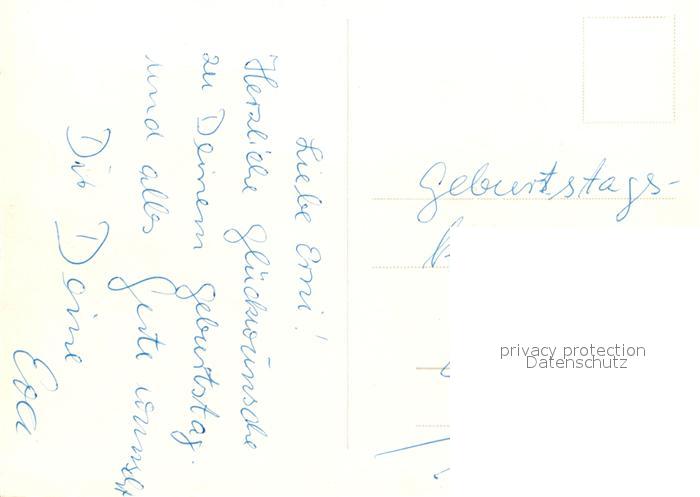 Liebe Erni!
Herzliche Glückwünsche
zu Deinem Geburtstag.
und alles Gute wünscht
Dir Deine
Eva
Geburtstags-
privacy protection
Datenschutz